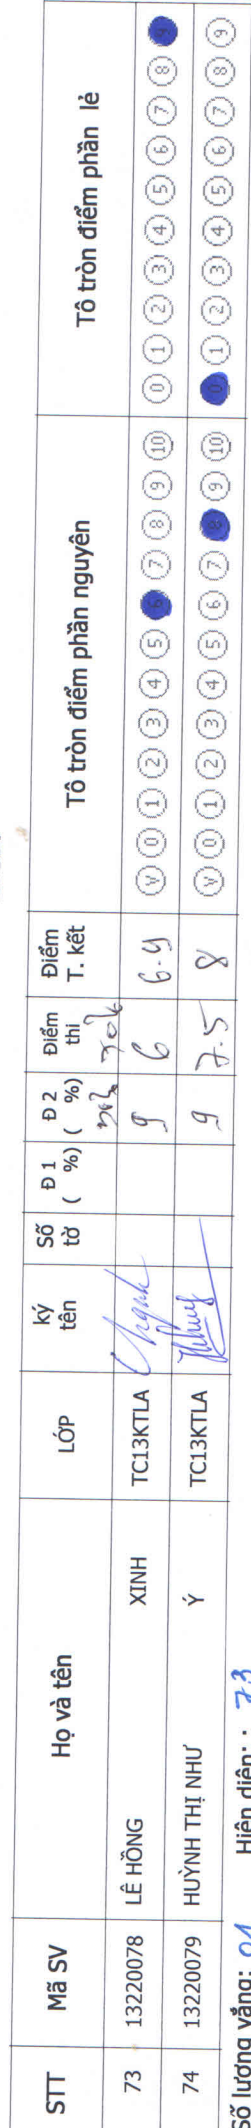 STT Mã SV Họ và tên LỚP ký tên Số tờ Đ 1 ( %) Đ 2 ( %) Điểm thi Điểm T. kết Tô tròn điểm phần nguyên Tô tròn điểm phần lẻ
30% 70%
73 13220078 LÊ HỒNG XINH TC13KTLA 9 6 6.9 V 0 1 2 3 4 5 6 7 8 9 10 0 1 2 3 4 5 6 7 8 9
74 13220079 HUỲNH THỊ NHƯ Ý TC13KTLA 9 7.5 8 V 0 1 2 3 4 5 6 7 8 9 10 0 1 2 3 4 5 6 7 8 9
Số lượng vắng: 01 Hiện diện: 73